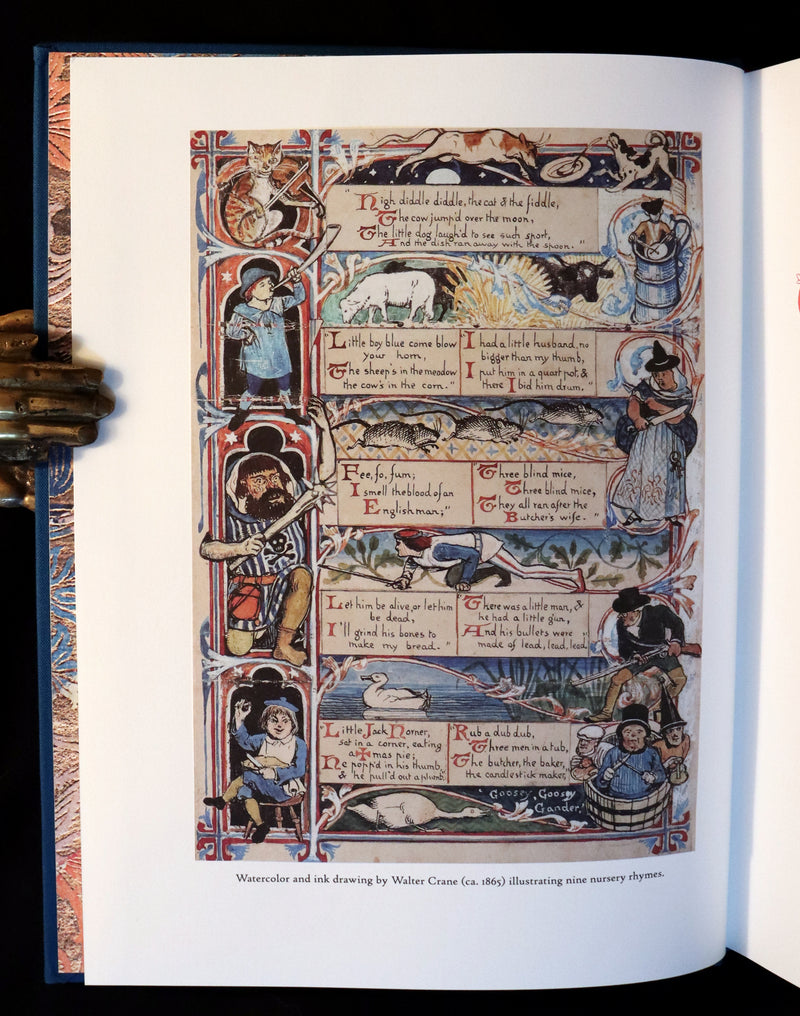 "High diddle diddle, the cat & the fiddle,
The cow jump'd over the moon,
The little dog laugh'd to see such sport,
And the dish ran away with the spoon."
"Little boy blue come blow
your horn,
The sheep's in the meadow
the cow's in the corn."
"I had a little husband, no
bigger than my thumb,
I put him in a quart pot, &
there I bid him drum,"
Fee, fo, fum;
I smell the blood of an
Englishman;"
Three blind mice,
Three blind mice,
They all ran after the
Butcher's wife."
Let him be alive, or let him
be dead,
I'll grind his bones to
make my bread."
"There was a little man, &
he had a little gun,
And his bullets were
made of lead, lead, lead
"Little Jack Horner,
sat in a corner, eating
a Xmas pie;
He popp'd in his thumb,
& he pull'd out a plumb.
"Rub a dub dub,
Three men in a tub,
The butcher, the baker,
the candlestick maker,
"Goosey, Goosey
Gander,"
Watercolor and ink drawing by Walter Crane (ca. 1865) illustrating nine nursery rhymes.